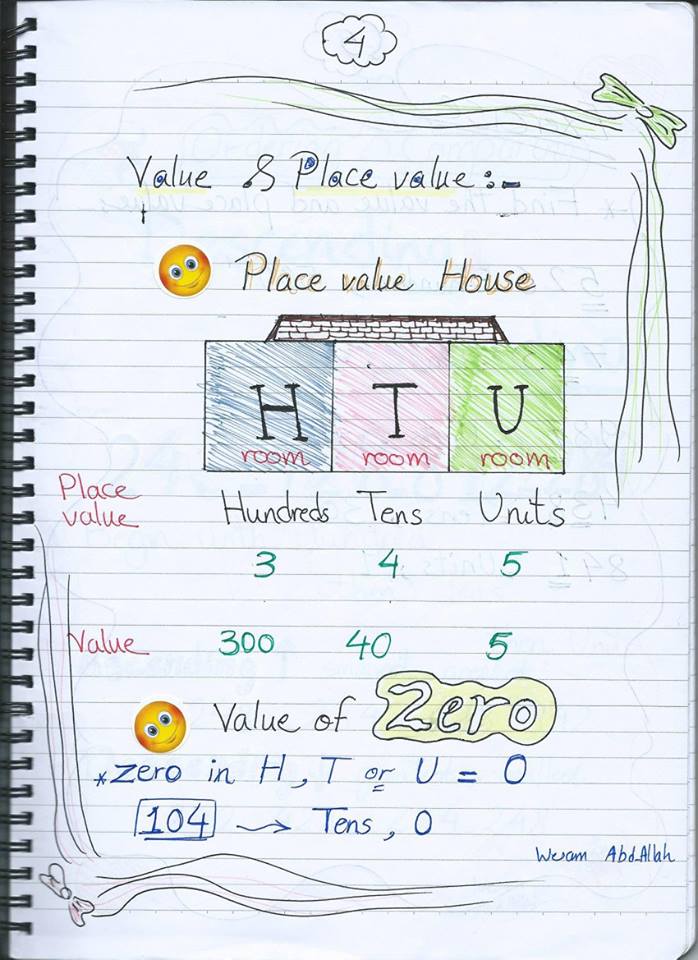 4
Value & Place value :-
Place value House
H T U
room room room
Place value
Hundreds Tens Units
3 4 5
Value 300 40 5
Value of Zero
*zero in H, T or U = 0
104 → Tens, 0
Weam AbdAllah